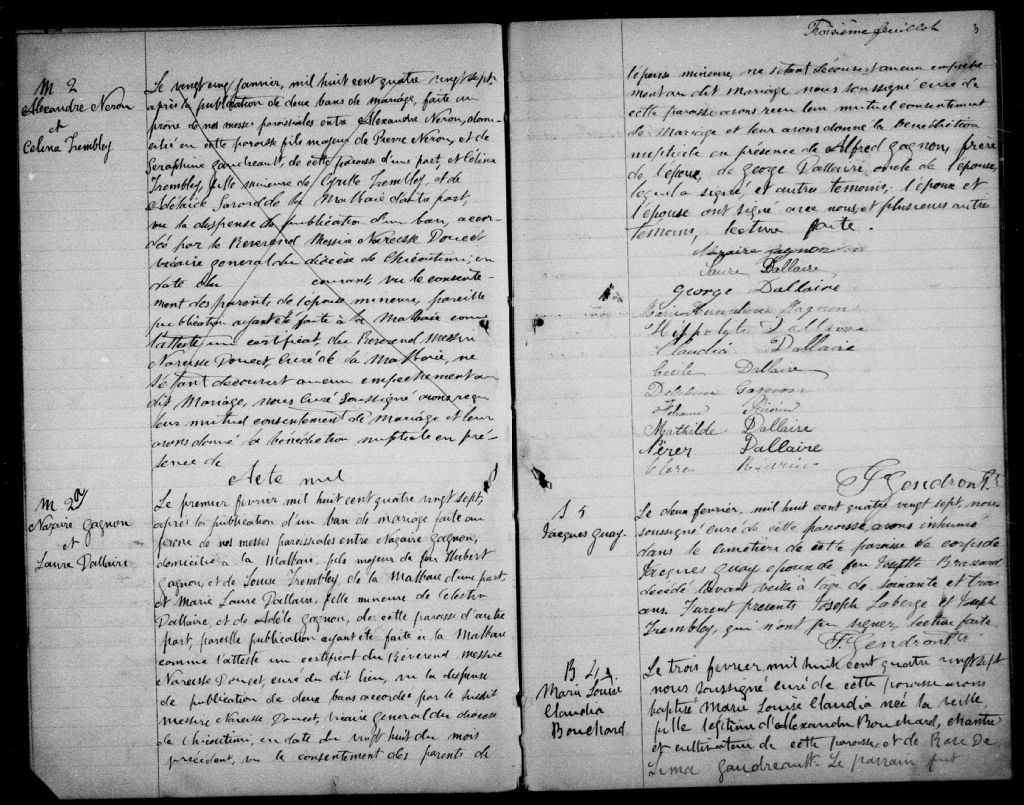 M 2
Alexandre Neron
et
Celina Trembley
Le vingt cinq janvier, mil huit cent quatre vingt sept,
après la publication de deux bans de mariage, faite au
prône de nos messes paroissiales entre Alexandre Neron, domi-
cilié en cette paroisse fils majeur de Pierre Neron, et de
Seraphine Gaudreault, de cette paroisse d'une part, et Célina
Trembley, fille mineure de Cyrille Trembley, et de
Adélaide Savard de la Malbaie d'autre part,
vu la dispense de publication d'un ban, accor-
dée par le Reverend Messire Narcisse Doucet
vicaire general du diocèse de Chicoutimi, en
date du courant, vu le consente-
ment des parents de l'épouse mineure, pareille
publication ayant été faite à la Malbaie comme
l'atteste un certificat, du Reverend Messire
Narcisse Doucet, Curé de la Malbaie, ne
s'étant découvert aucun empêchement au
dit Mariage, nous Curé soussigné avons reçu
leur mutuel consentement de mariage et leur
avons donné la bénédiction nuptiale en pré-
sence de
Acte nul
M 2
Nazaire Gagnon
et
Laure Dallaire
Le premier février mil huit cent quatre vingt sept,
après la publication d'un ban de mariage faite au
prône de nos messes paroissiales entre Nazaire Gagnon,
domicilié à la Malbaie, fils majeur de feu Hubert
Gagnon, et de Louise Trembley, de la Malbaie d'une part,
et Marie Laure Dallaire, fille mineure de Celestin
Dallaire, et de Adèle Gagnon, de cette paroisse d'autre
part, pareille publication ayant été faite à la Malbaie
comme l'atteste un certificat du Réverend messire
Narcisse Doucet, curé du dit lieu, vu la dispense
de publication de deux bans accordée par le susdit
messire Narcisse Doucet, vicaire general du diocèse
de Chicoutimi, en date du vingt huit du mois
précédent, vu le consentement des parents de
Troisième feuillet 3
l'épouse mineure, ne s'étant découvert aucun empêche
ment au dit mariage nous soussigné curé de
cette paroisse avons reçu leur mutuel consentement
de Mariage et leur avons donné la bénédiction
nuptiale en présence de Alfred Gagnon, frère
de l'époux, de George Dallaire, oncle de l'épouse,
lequel a signé et autres temoins, l'époux et
l'épouse ont signé avec nous, et plusieurs autres
temoins, lecture faite.
Nazaire Gagnon
Laure Dallaire
George Dallaire
Gagnon
Hippolyte Dallaire
Claudia Dallaire
Cecile Dallaire
Delphine Gagnon
Mathilde Dallaire
Nérée Dallaire
Clara
F. Gendron Ptre
S 5
Jacques Guay.
Le deux février, mil huit cent quatre vingt sept, nous
soussigné curé de cette paroisse, avons inhumé
dans le cimetière de cette paroisse le corps de
Jacques Guay, epoux de feu Josephte Brassard
décédé l'avant veille à l'age de soixante et trois
ans. Furent presents Joseph Laberge et Joseph
Trembley, qui n'ont pu signer, lecture faite.
F. Gendron Ptre
B 4
Marie Louise
Claudia
Bouchard.
Le trois février mil huit cent quatre vingt sept
nous soussigné curé de cette paroisse avons
baptisé Marie Louise Claudia née la veille,
fille legitime d'Alexandre Bouchard, chantre
et cultivateur de cette paroisse, et de Rose De
Lima Gaudreault. Le parrain fut